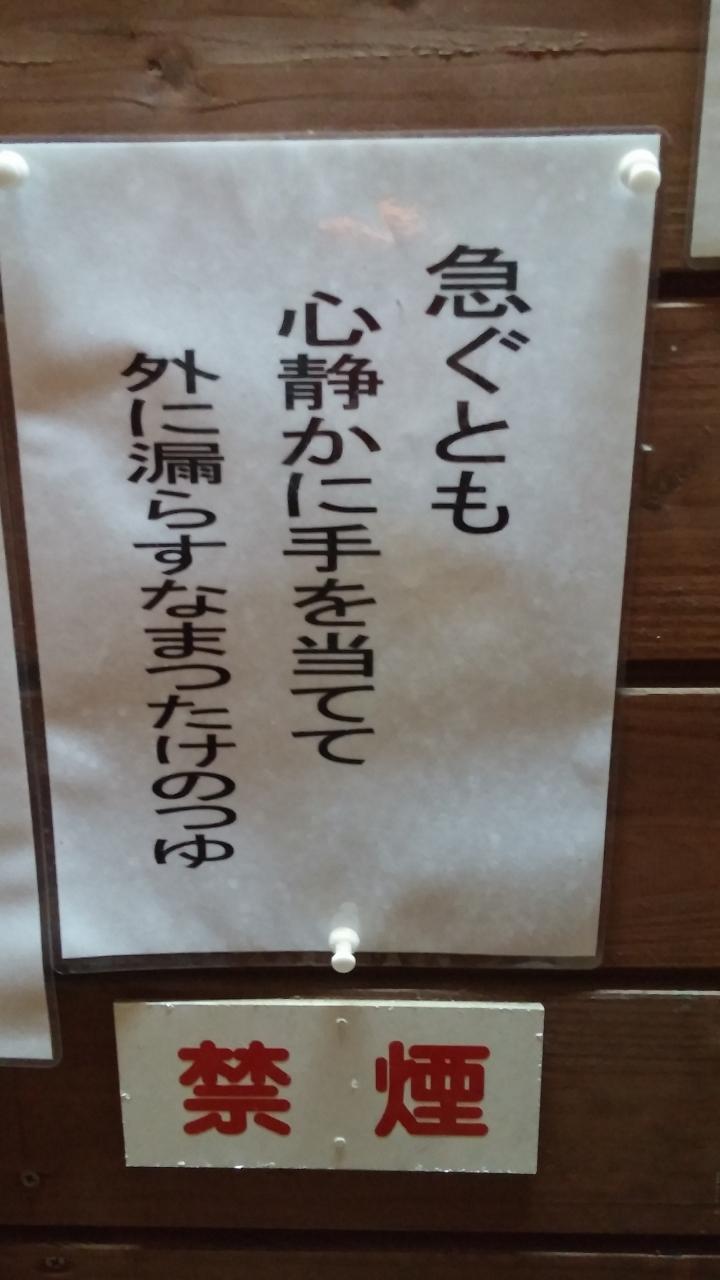 急ぐとも
心静かに手を当てて
外に漏らすなまつたけのつゆ
禁煙